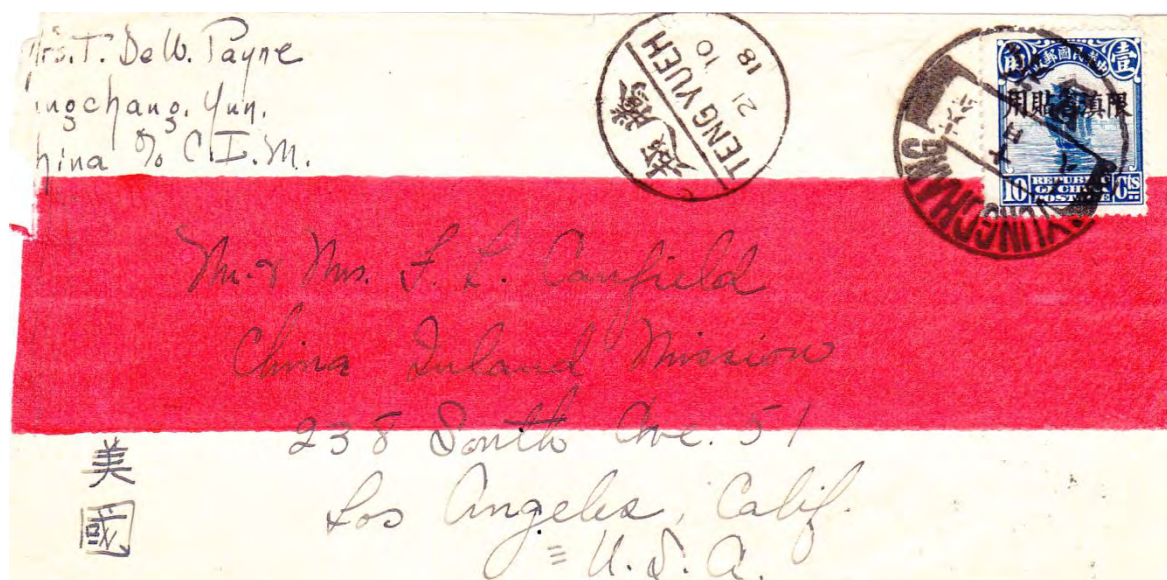 Mrs. T. DeW. Payne
ungchang. Yun.
hina % C.I.M.
騰越
TENGYUEH
21 10
18
角 壹
限滇省貼用
10 REPUBLIC OF CHINA POSTAGE Cts
YUNGCHANG
Mr. & Mrs. F. L. Canfield
China Inland Mission
238 South Ave. 51
Los Angeles, Calif.
U.S.A.
美國